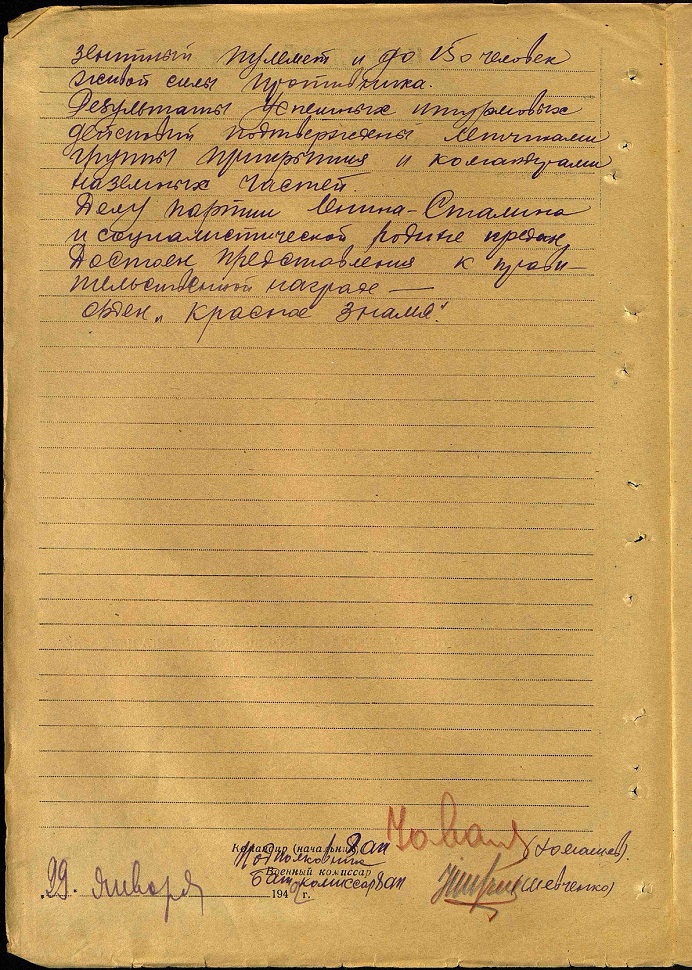 зенитный пулемет и до 150 человек
живой силы противника.
Результаты успешных штурмовых
действий подтверждены летчиками
группы прикрытия и командирами
наземных частей.
Делу партии Ленина-Сталина
и социалистической родине предан
Достоен представления к прави-
тельственной награде —
орден „Красное Знамя".
Командир (начальник)
Подполковник
Военный комиссар
Бат. комиссар
(Шевченко)
29. января 194 г.